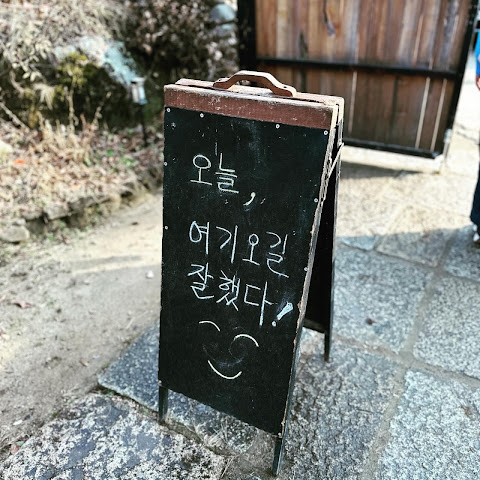 오늘,
여기오길
잘했다!